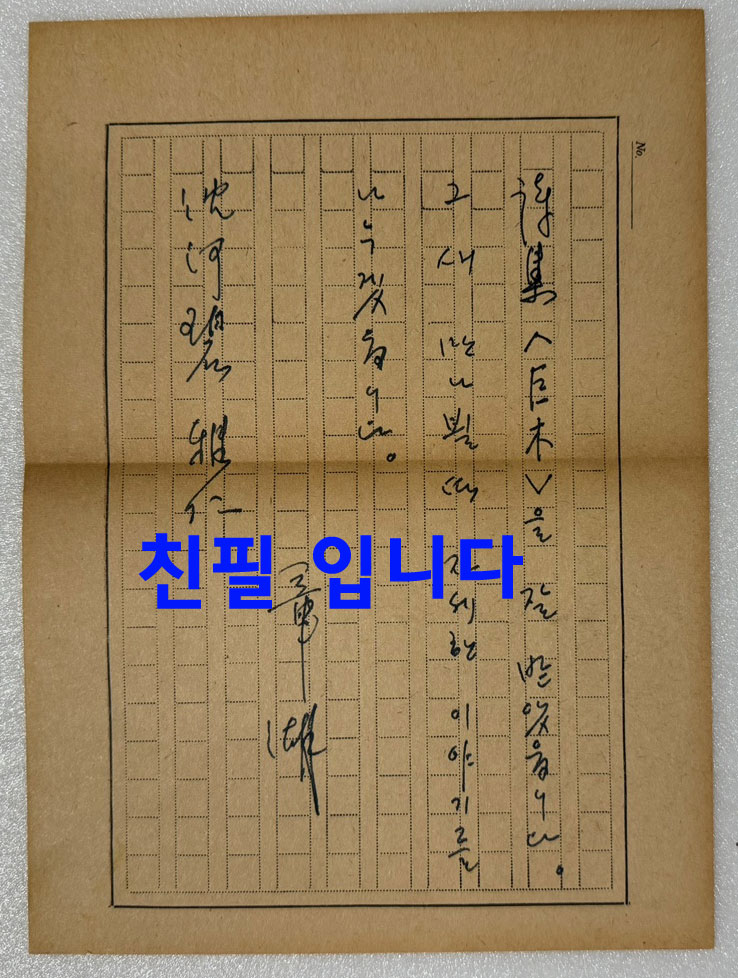 No
詩集 <巨木>을 잘 받았읍니다。
그새 만나뵐 때 자세한 이야기를
나누겠읍니다。
沈河碧 雅仁
친필 입니다